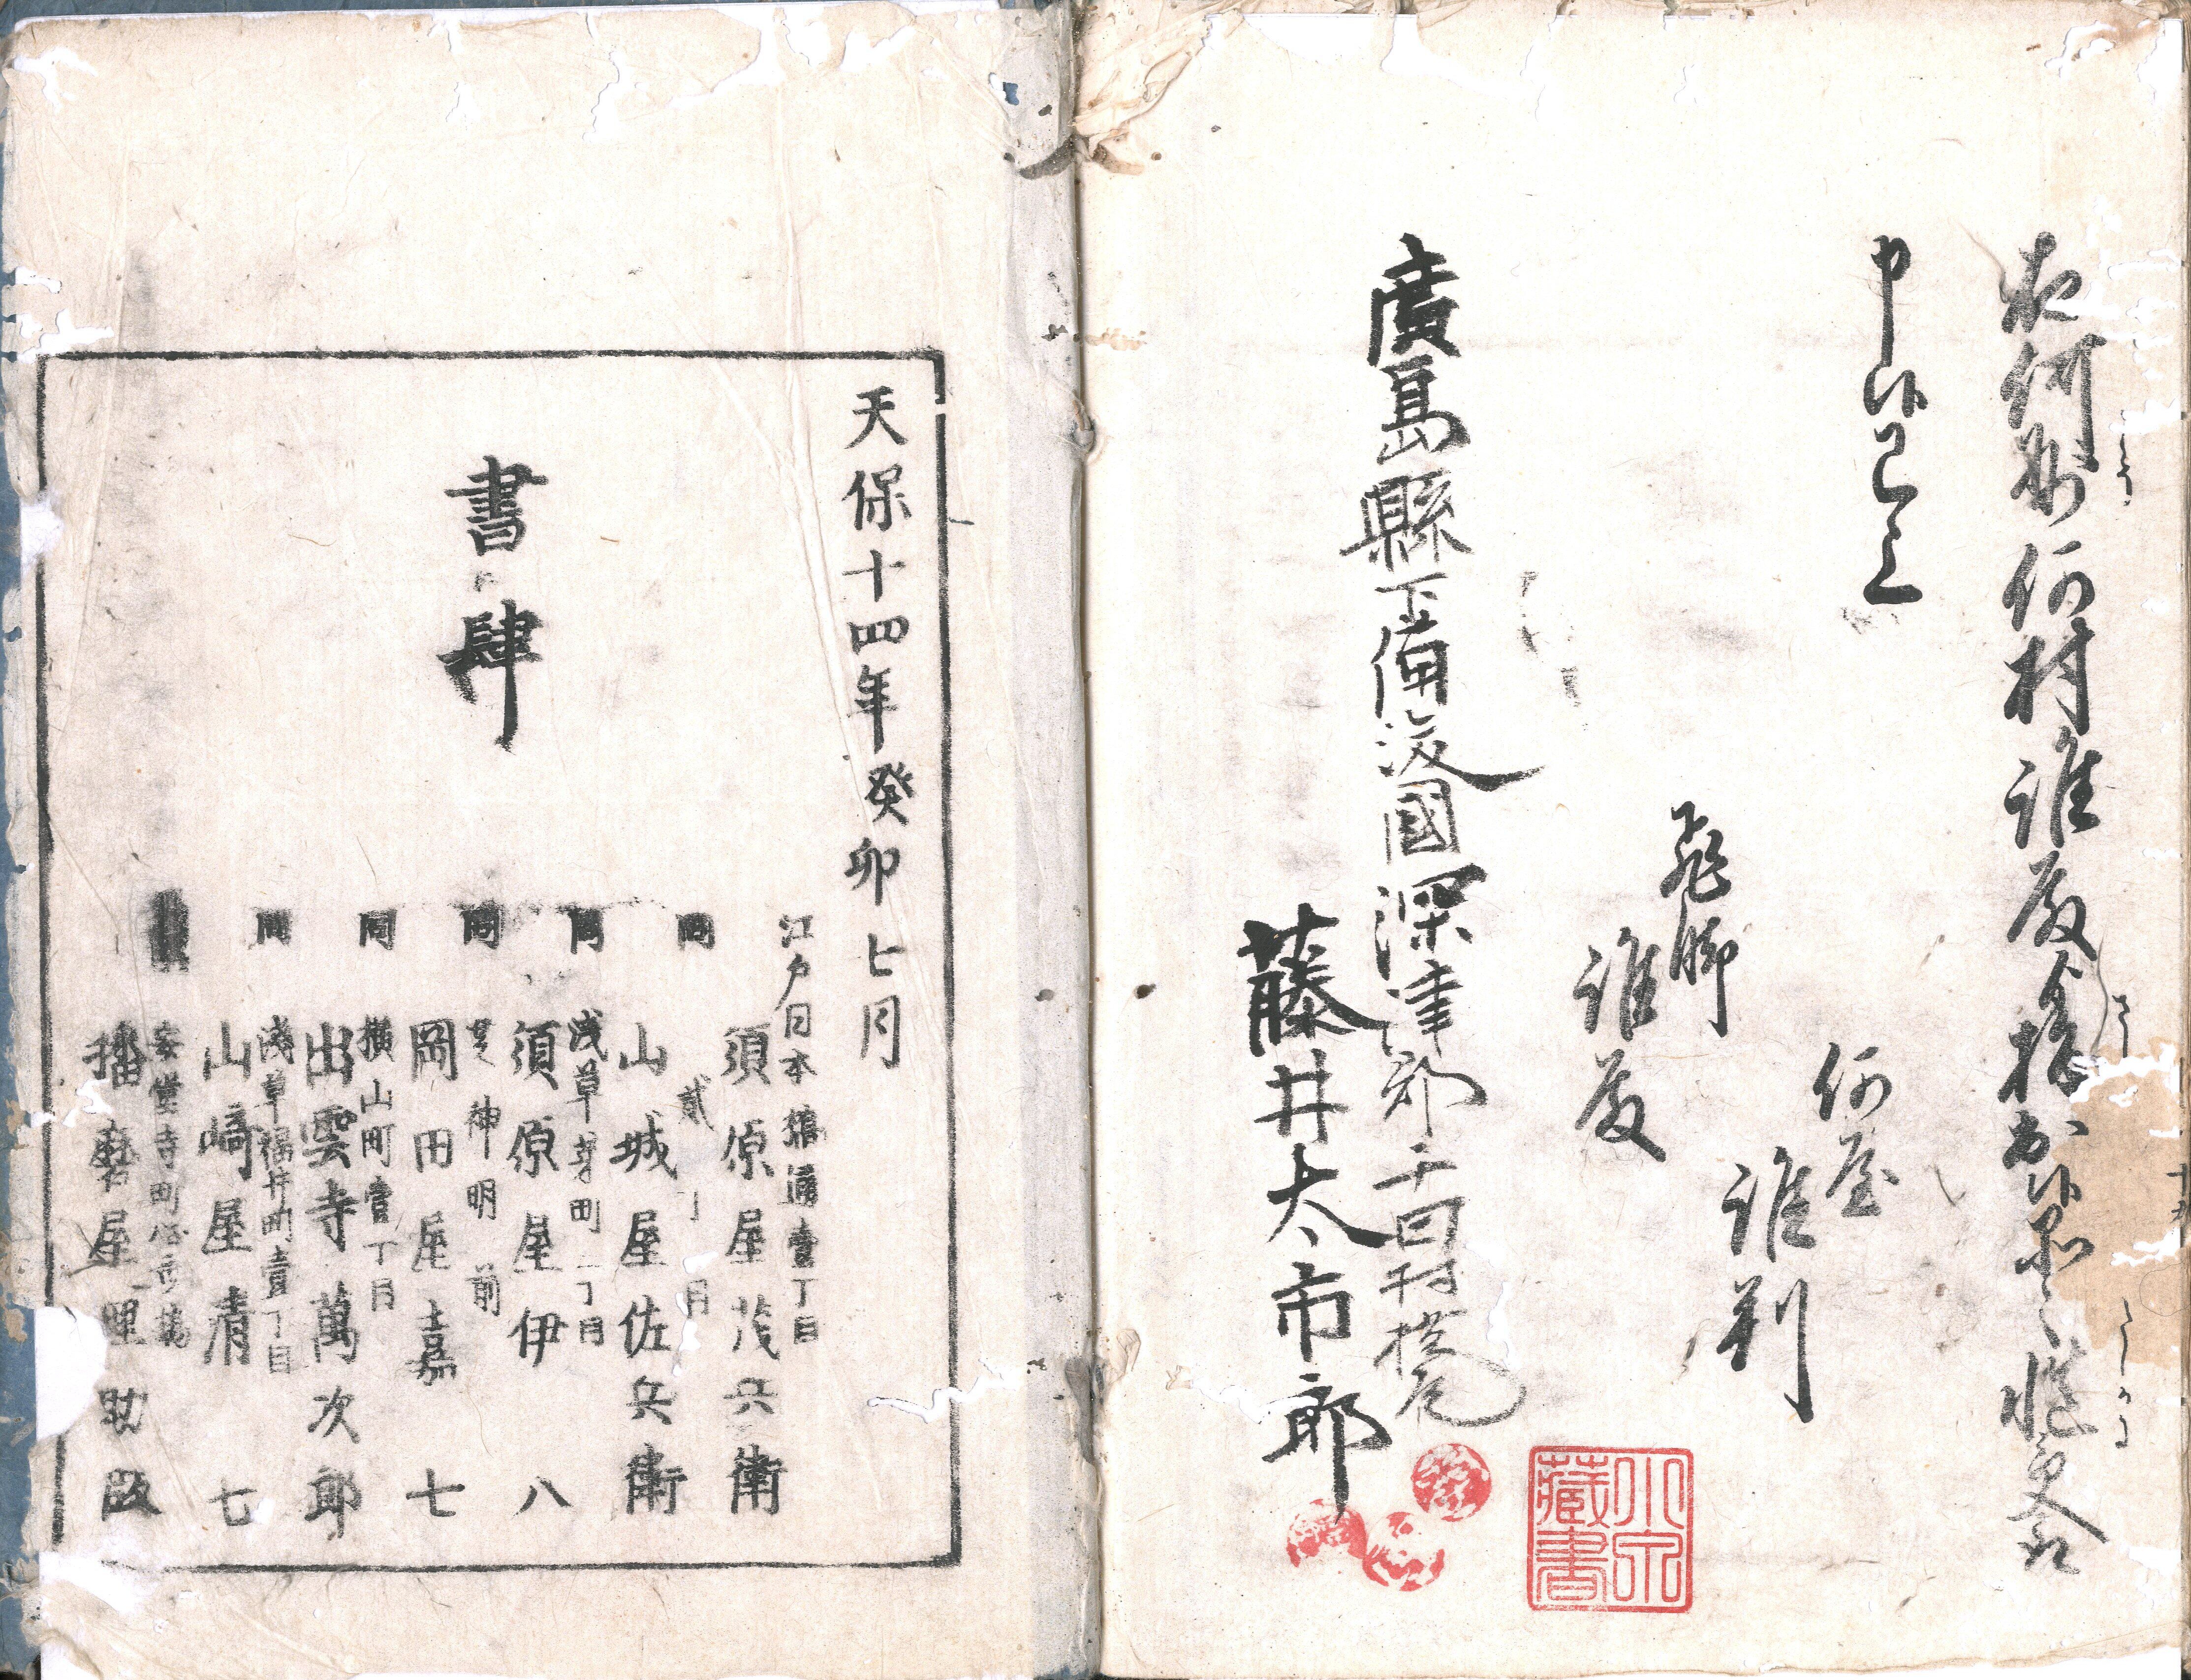 夜何州何村誰殿
申候已上
何屋
誰判
飛脚
誰殿
廣島縣下備後國深津郡千田村
藤井太市郎
小宗
藏書
天保十四年癸卯七月
書肆
江戸日本橋通壹丁目
須原屋茂兵衛
同 貳丁目
山城屋佐兵衛
同 浅草茅町二丁目
須原屋伊八
同 芝神明前
岡田屋嘉七
同 横山町壹丁目
出雲寺萬次郎
同 浅草福井町壹丁目
山崎屋清七
播磨屋理助版